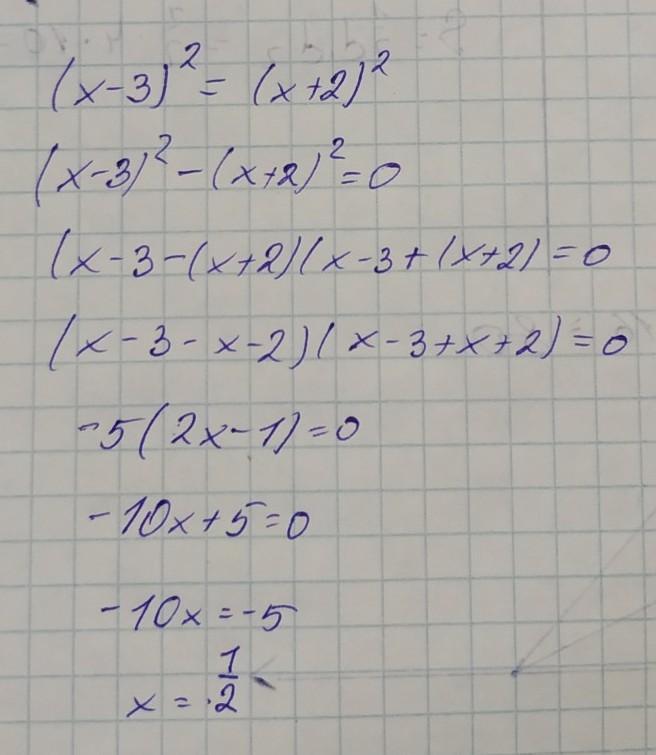 (x-3)² = (x+2)²
(x-3)² - (x+2)² = 0
(x-3-(x+2)(x-3+(x+2) = 0
(x-3-x-2)(x-3+x+2) = 0
-5(2x-1) = 0
-10x+5=0
-10x = -5
x = 1/2